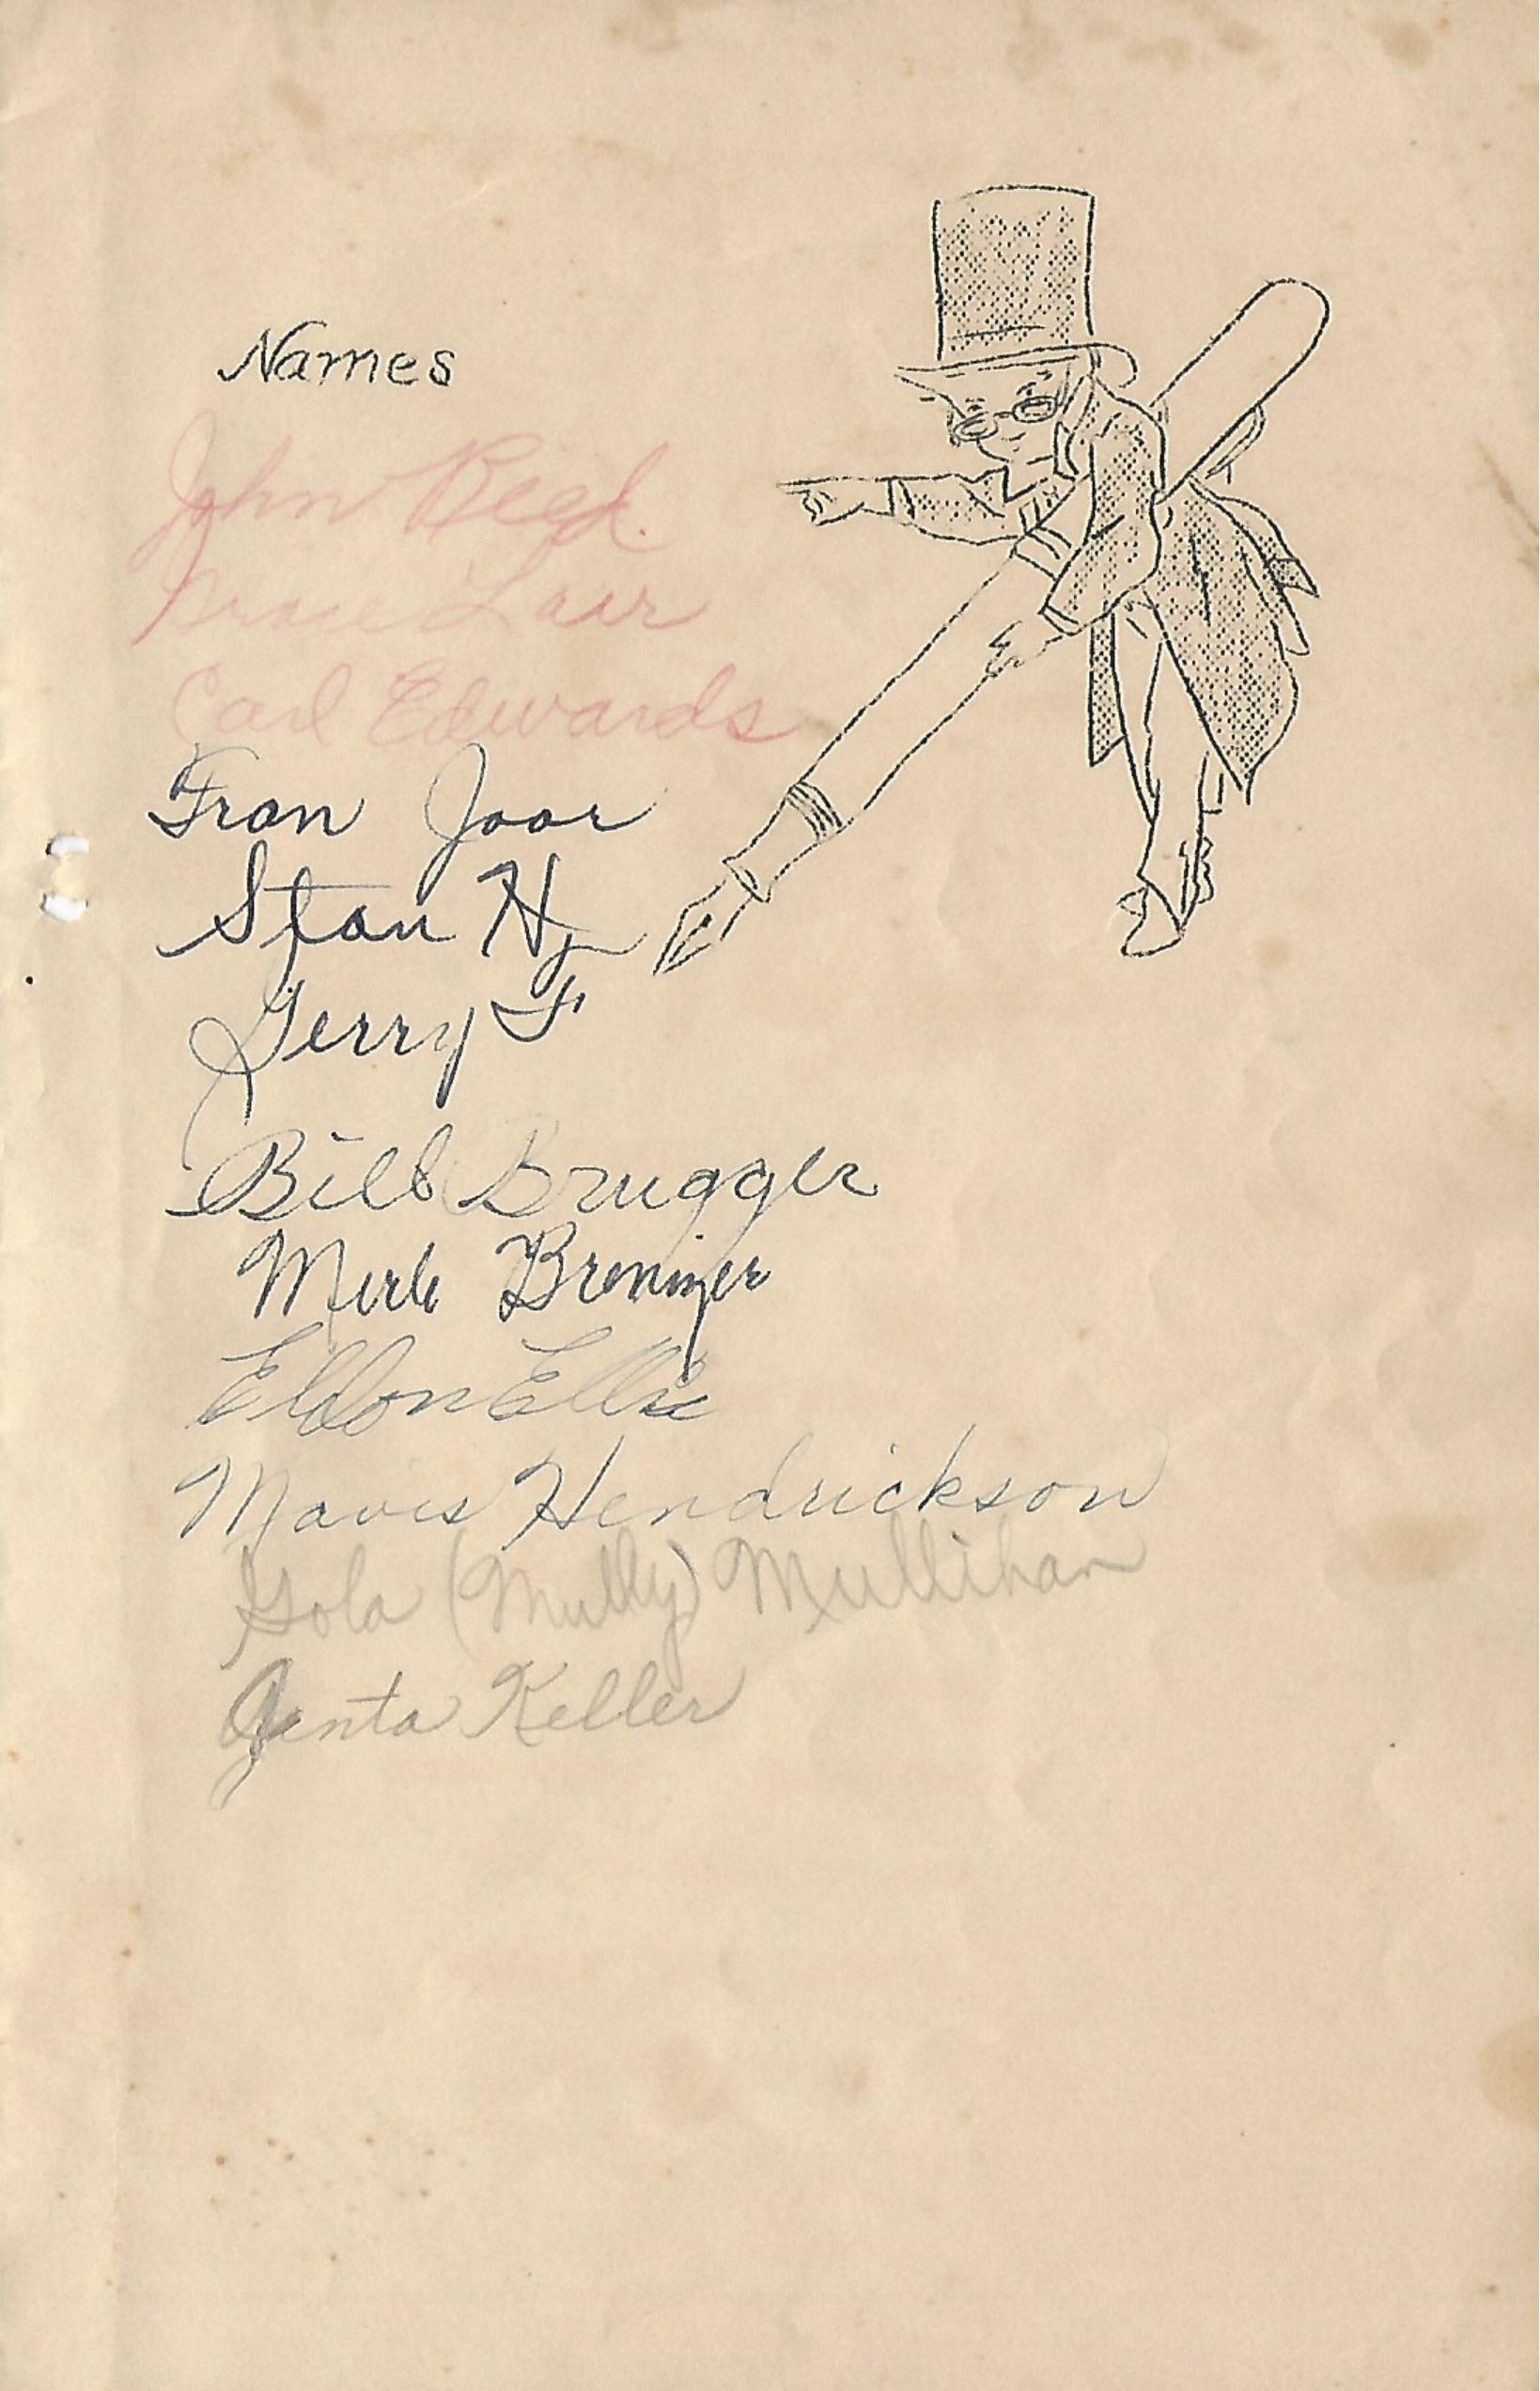 Names
John Reed.
Lair
Carl Edwards
Fran Joor
Stan H
Gerry F
Bill Brugger
Merle Breninger
Eldon Ellis
Mavis Hendrickson
Gola (Mully) Mullihan
Genta Keller